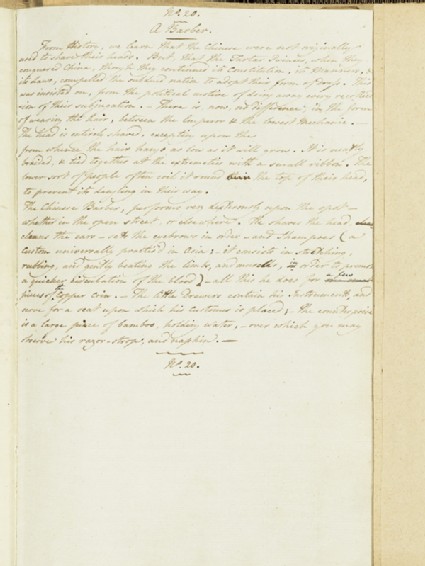 No. 20.
A Barber.
From History, we learn that the Chinese were not originally
used to shave their heads. But, that the Tartar Princes, when they
conquered China, though they conformed in Constitution, in Manners, &
in Laws, compelled the subdued nation to adopt their form of
was insisted on, from the political motive of being some
sion of their subjugation. - There is now no difference, in the form
of wearing the hair, between the Emperor & the lowest Mechanic. -
The head is entirely shaved, excepting upon the
from whence the hair hangs as long as it will grow. It is
braided, & tied together at the extremity with a small ribbon. The
lower sort of people often coil it round the top of their head,
to prevent it dangling in their way.
The Chinese Barber, performs very dexterously upon the spot -
whether in the open street or elsewhere. He shaves the head
cleans the ears - sets the eyebrows in order - and Shampoos (a
custom universally practised in Asia; - it consists in stretching,
rubbing, and gently beating the limbs, and muscles, in order to
a quicker circulation of the blood) - all this he does for a few
pieces of Copper Coin. - The little Drawers contain his Instruments, and
serve for a seat upon which his customer is placed; - the counterpoise
is a large piece of bamboo, holding water, - over which you may
observe his razor-strop, and napkin. -
No. 20.